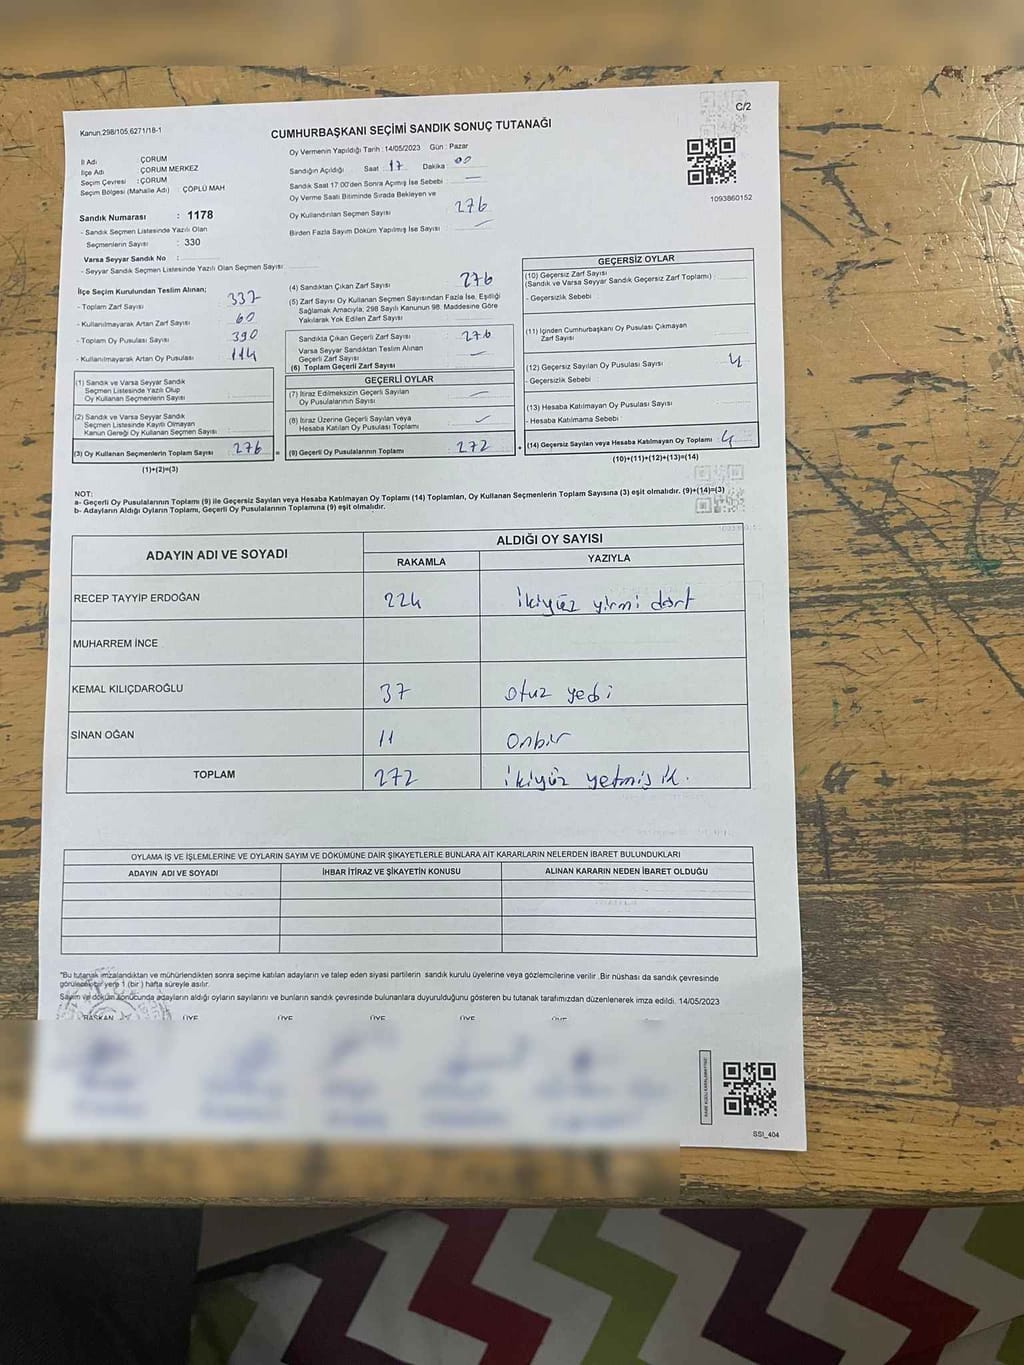 Kanun.298/105,6271/18-1
C/2
CUMHURBAŞKANI SEÇİMİ SANDIK SONUÇ TUTANAĞI
İl Adı : ÇORUM
İlçe Adı : ÇORUM MERKEZ
Seçim Çevresi : ÇORUM
Seçim Bölgesi (Mahalle Adı) : ÇÖPLÜ MAH
Sandık Numarası : 1178
- Sandık Seçmen Listesinde Yazılı Olan
Seçmenlerin Sayısı : 330
Varsa Seyyar Sandık No :
- Seyyar Sandık Seçmen Listesinde Yazılı Olan Seçmen Sayısı:
Oy Vermenin Yapıldığı Tarih : 14/05/2023 Gün : Pazar
Sandığın Açıldığı Saat : 17 Dakika : 00
Sandık Saat 17:00'den Sonra Açımış İse Sebebi : —
Oy Verme Saati Bitiminde Sırada Bekleyen ve
Oy Kullandırılan Seçmen Sayısı : 276
Birden Fazla Sayım Döküm Yapılmış İse Sayısı : —
1093860152
İlçe Seçim Kurulundan Teslim Alınan;
- Toplam Zarf Sayısı : 337
- Kullanılmayarak Artan Zarf Sayısı : 60
- Toplam Oy Pusulası Sayısı : 390
- Kullanılmayarak Artan Oy Pusulası : 114
(1) Sandık ve Varsa Seyyar Sandık
Seçmen Listesinde Yazılı Olup
Oy Kullanan Seçmenlerin Sayısı :
(2) Sandık ve Varsa Seyyar Sandık
Seçmen Listesinde Kayıtlı Olmayan
Kanun Gereği Oy Kullanan Seçmen Sayısı :
(3) Oy Kullanan Seçmenlerin Toplam Sayısı : 276
(1)+(2)=(3)
(4) Sandıktan Çıkan Zarf Sayısı : 276
(5) Zarf Sayısı Oy Kullanan Seçmen Sayısından Fazla İse, Eşitliği
Sağlamak Amacıyla; 298 Sayılı Kanunun 98. Maddesine Göre
Yakılarak Yok Edilen Zarf Sayısı :
Sandıkta Çıkan Geçerli Zarf Sayısı : 276
Varsa Seyyar Sandıktan Teslim Alınan
Geçerli Zarf Sayısı : —
(6) Toplam Geçerli Zarf Sayısı :
GEÇERLİ OYLAR
(7) İtiraz Edilmeksizin Geçerli Sayılan
Oy Pusulalarının Sayısı : —
(8) İtiraz Üzerine Geçerli Sayılan veya
Hesaba Katılan Oy Pusulası Toplamı : —
= (9) Geçerli Oy Pusulalarının Toplamı : 272
GEÇERSİZ OYLAR
(10) Geçersiz Zarf Sayısı
(Sandık ve Varsa Seyyar Sandık Geçersiz Zarf Toplamı) :
- Geçersizlik Sebebi :
(11) İçinden Cumhurbaşkanı Oy Pusulası Çıkmayan
Zarf Sayısı :
(12) Geçersiz Sayılan Oy Pusulası Sayısı : 4
- Geçersizlik Sebebi :
(13) Hesaba Katılmayan Oy Pusulası Sayısı :
- Hesaba Katılmama Sebebi :
+ (14) Geçersiz Sayılan veya Hesaba Katılmayan Oy Toplamı : 4
(10)+(11)+(12)+(13)=(14)
NOT:
a- Geçerli Oy Pusulalarının Toplamı (9) ile Geçersiz Sayılan veya Hesaba Katılmayan Oy Toplamı (14) Toplamları, Oy Kullanan Seçmenlerin Toplam Sayısına (3) eşit olmalıdır. (9)+(14)=(3)
b- Adayların Aldığı Oyların Toplamı, Geçerli Oy Pusulalarının Toplamına (9) eşit olmalıdır.
ADAYIN ADI VE SOYADI ALDIĞI OY SAYISI
RAKAMLA YAZIYLA
RECEP TAYYİP ERDOĞAN 224 ikiyüz yirmi dört
MUHARREM İNCE
KEMAL KILIÇDAROĞLU 37 otuz yedi
SİNAN OĞAN 11 Onbir
TOPLAM 272 ikiyüz yetmiş ik.
OYLAMA İŞ VE İŞLEMLERİNE VE OYLARIN SAYIM VE DÖKÜMÜNE DAİR ŞİKAYETLERLE BUNLARA AİT KARARLARIN NELERDEN İBARET BULUNDUKLARI
ADAYIN ADI VE SOYADI İHBAR İTİRAZ VE ŞİKAYETİN KONUSU ALINAN KARARIN NEDEN İBARET OLDUĞU
"Bu tutanak imzalandıktan ve mühürlendikten sonra seçime katılan adayların ve talep eden siyasi partilerin sandık kurulu üyelerine veya gözlemcilerine verilir .Bir nüshası da sandık çevresinde
görülecek bir yere 1 (bir ) hafta süreyle asılır.
Sayım ve döküm sonucunda adayların aldığı oyların sayılarını ve bunların sandık çevresinde bulunanlara duyurulduğunu gösteren bu tutanak tarafımızdan düzenlenerek imza edildi. 14/05/2023
BAŞKAN ÜYE ÜYE ÜYE ÜYE ÜYE
SSI_404